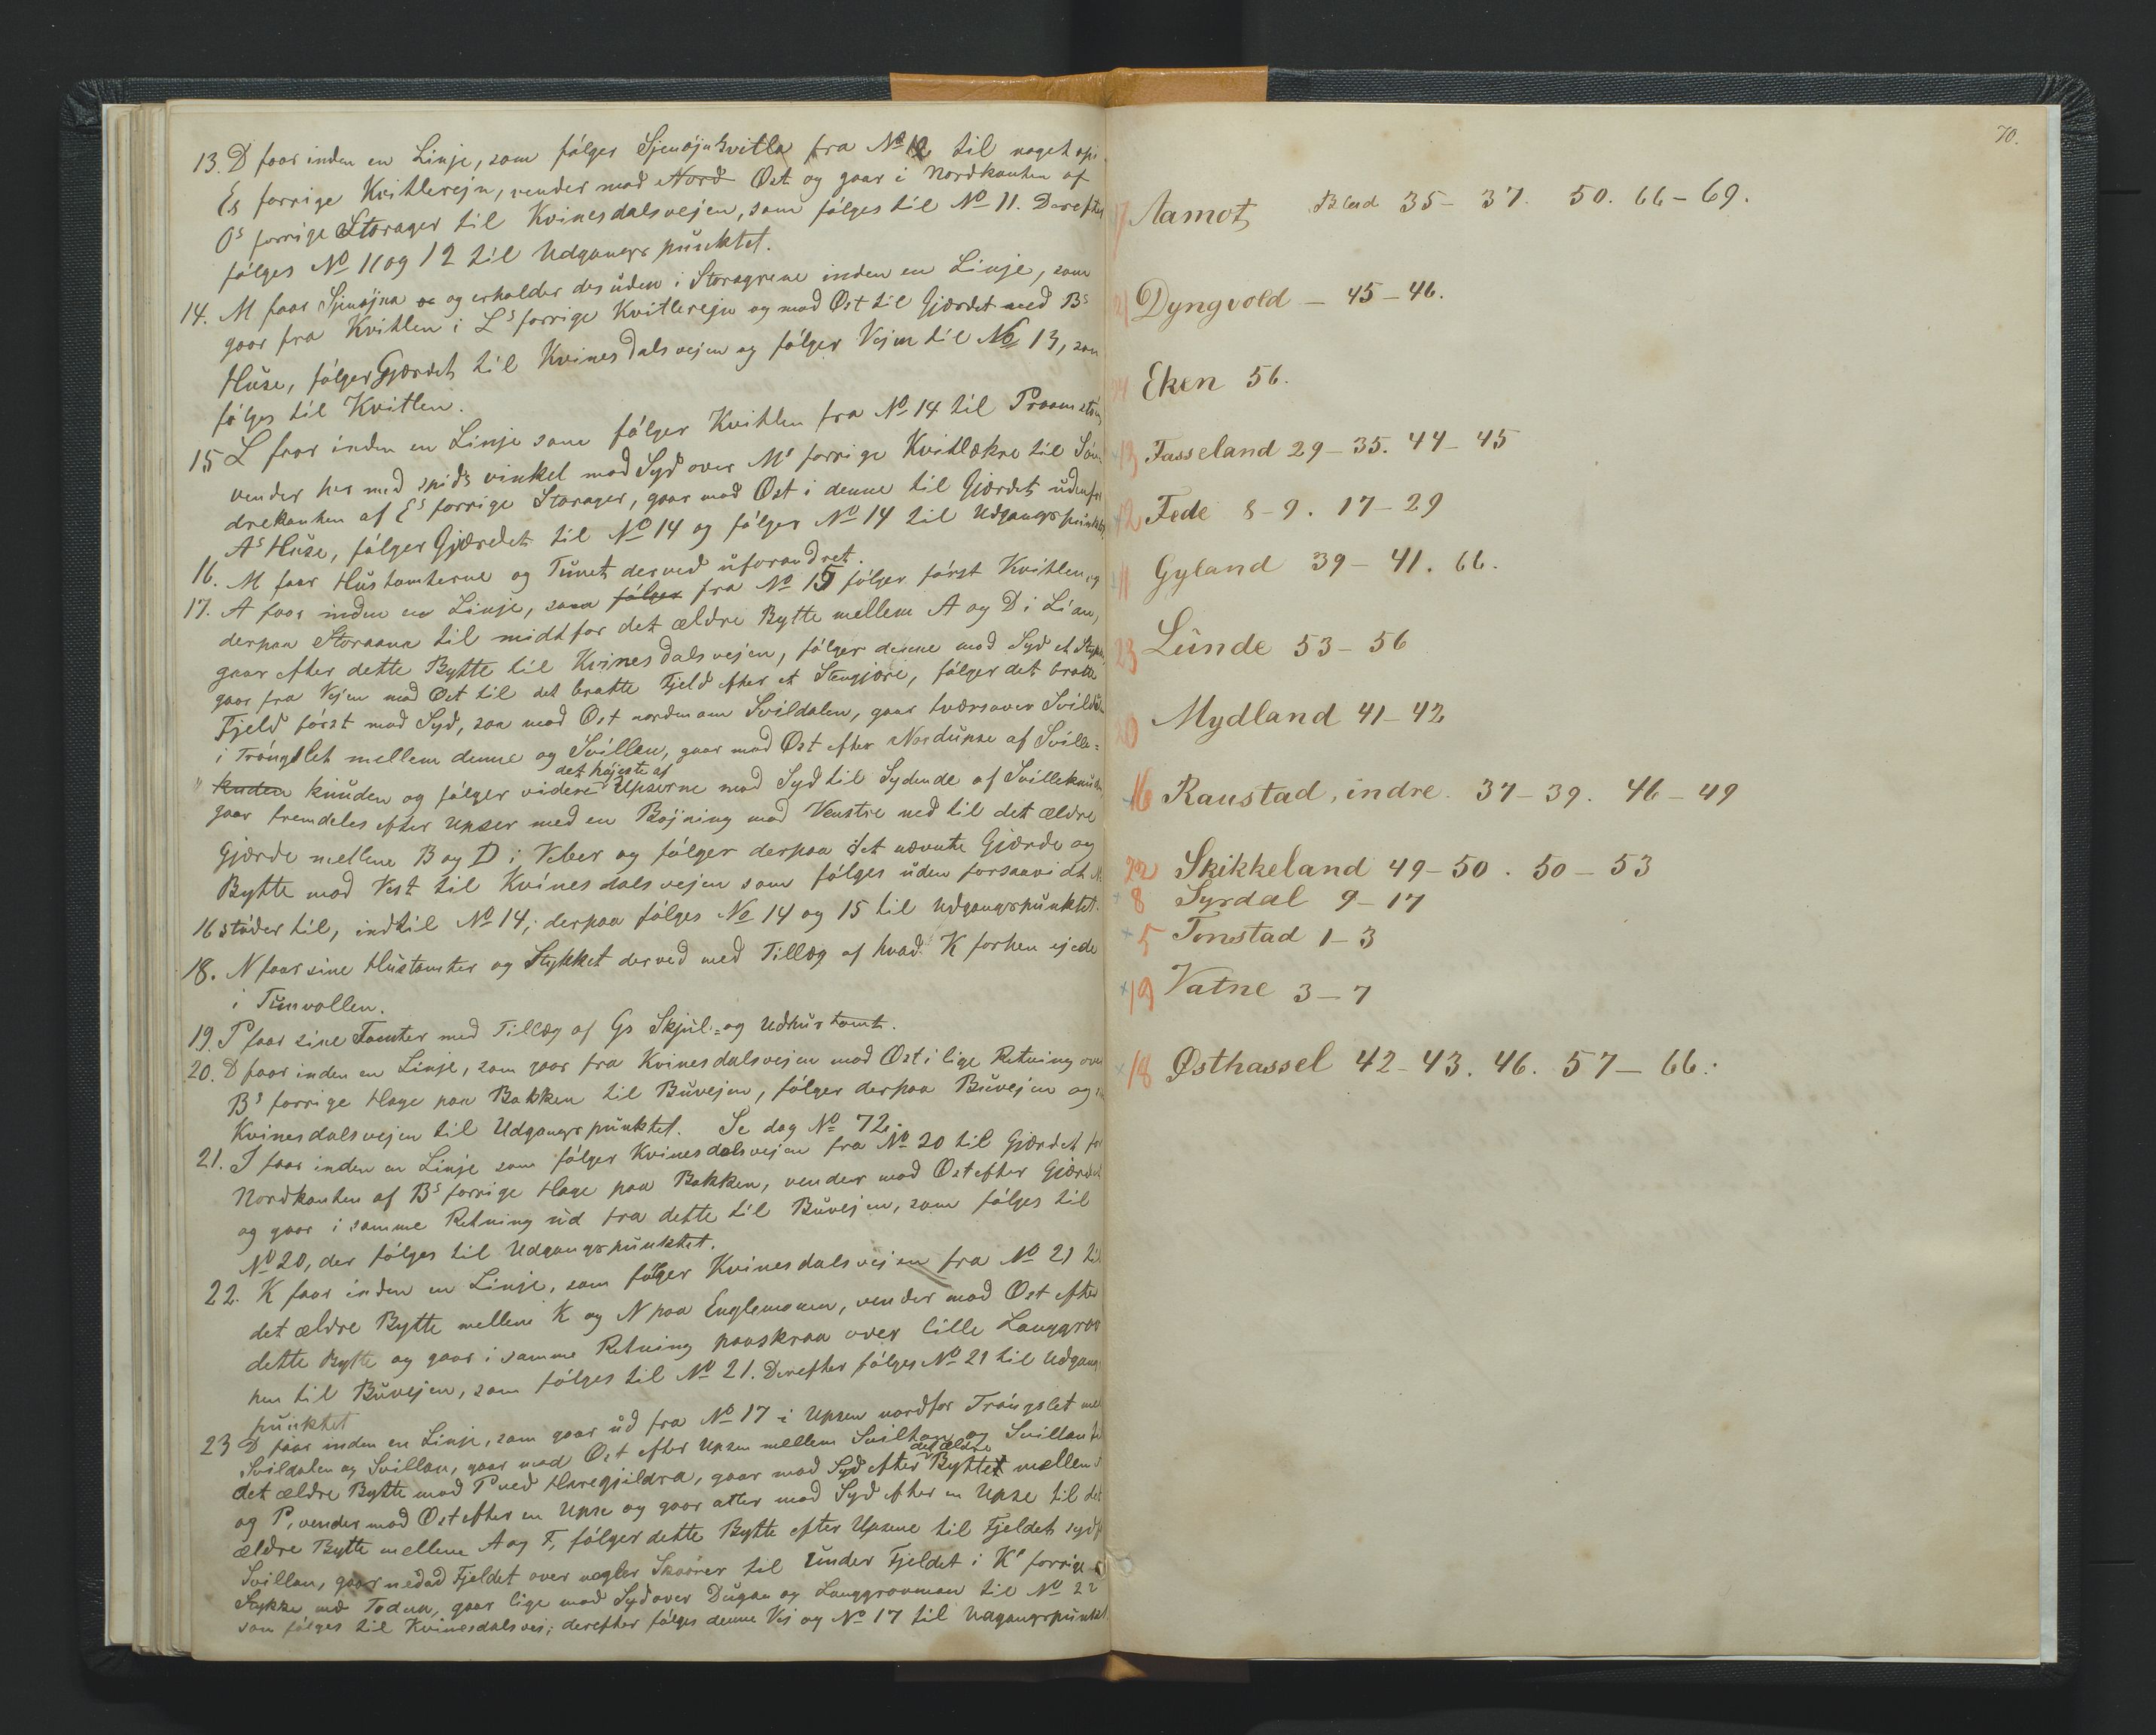 13. D faar inden en Linje, som følger Sjenøjnkvitla fra No 12 til noget opi
Es forrige Kvitlerejn, vender mod Nord Øst og gaar i Nordkanten af
Os forrige Storager til Kvinesdalsvejen, som følges til No 11. Derefter
følges No 11 og 12 til Udgangspunktet.
14. M faar Sjenøjna og erholder desuden i Storagrene inden en Linje, som
gaar fra Kvitlen i Ls forrige Kvitlerejn og mod Øst til Gjærdet ved Bs
Huse, følger Gjærdet til Kvinesdalsvejen og følger Vejen til No 13, som
følges til Kvitlen.
15 L faar inden en Linje som følger Kvitlen fra No 14 til
vender her med spids vinkel mod Syd over Ms forrige Kvitlækre til Søn-
drekanten af Es forrige Storager, gaar mod Øst i denne til Gjærdet udenfor
As Huse, følger Gjærdet til No 14 og følger No 14 til Udgangspunktet.
16. M faar Hustomterne og Tunet derved uforandret.
17. A faar inden en Linje, som følger fra No 15 følger først Kvitlen og
derpaa Storaana til midt for det ældre Bytte mellem A og D i Lian,
gaar efter dette Bytte til Kvinesdalsvejen, følger denne mod Syd et Stykke,
gaar fra Vejen mod Øst til det bratte Fjeld efter et Stengjøre, følger det bratte
Fjeld først mod Syd, saa mod Øst nordenom Svildalen, gaar tværsover Svildalen
i Trángslet mellem denne og Svillan, gaar mod Øst efter Nordupse af Sville-
" knuden knuden og følger videre det højeste af Upserne mod Syd til Sydende af Svilleknuden
gaar fremdeles efter Upser med en Bøjning mod Venstre ned til det ældre
Gjærde mellem B og D i Veber og følger derpaa det nævnte Gjærde og
Bytte mod Vest til Kvinesdalsvejen som følges uden forsaavidt No
16 støder til, indtil No 14; derpaa følges No 14 og 15 til Udgangspunktet.
18. N faar sine Hustomter og Stykket derved med Tillæg af hvad K forhen ejede
i Tunvollen.
19. P faar sine Tomter med Tillæg af Gs Skjul- og Udhustomt.
20. D faar inden en Linje, som gaar fra Kvinesdalsvejen mod Øst i lige Retning over
Bs forrige Hage paa Bakken til Buvejen, følger derpaa Buvejen og
Kvinesdalsvejen til Udgangspunktet. Se dog No 72.
21. I faar inden en Linje som følger Kvinesdalsvejen fra No 20 til Gjærdet for
Nordkanten af Bs forrige Hage paa Bakken, vender mod Øst efter Gjærdet
og gaar i samme Retning ud fra dette til Buvejen, som følges til
No 20, der følges til Udgangspunktet.
22. K faar inden en Linje, som følger Kvinesdalsvejen fra No 21 til
det ældre Bytte mellem K og N paa Englemoen, vender mod Øst efter
dette Bytte og gaar i samme Retning paaskraa over lille Langgrov
hen til Buvejen, som følges til No 21. Derefter følges No 21 til Udgangs
punktet
23 D faar inden en Linje, som gaar ud fra No 17 i Upsen nordfor Trángslet mel
Svildalen og Svillan, gaar mod Øst efter Upsen mellem og Svillan til
det ældre Bytte mod P ved Haregjildra, gaar mod Syd efter det ældre Byttet mellem
og P, vender mod Øst efter en Upse og gaar atter mod Syd efter en Upse til det
ældre Bytte mellem A og F, følger dette Bytte efter Upsene til Fjeldet sydfor
Svillan, gaar nedad Fjeldet over nogler Skaarer til under Fjeldet i Ks forrige
Stykke ved Toden, gaar lige mod Syd over Dugan og Langgrovmoen til No 22
som følges til Kvinesdalsvej; derefter følges denne Vej og No 17 til Udgangspunktet.
70.
17 Aamot, Blad 35 - 37. 50. 66 - 69.
21 Dyngvold - 45 - 46.
24 Eken 56.
+13 Fasseland 29 - 35. 44 - 45
+12 Fede 8 - 9. 17 - 29
+11 Gyland 39 - 41. 66.
23 Lunde 53 - 56
20 Mydland 41 - 42
+16 Raustad, indre. 37 - 39. 46 - 49
22 Skikkeland 49 - 50. 50 - 53
+8 Syrdal 9 - 17
+5 Tonstad 1 - 3
+19 Vatne 3 - 7
+18 Østhassel 42 - 43. 46. 57 - 66.